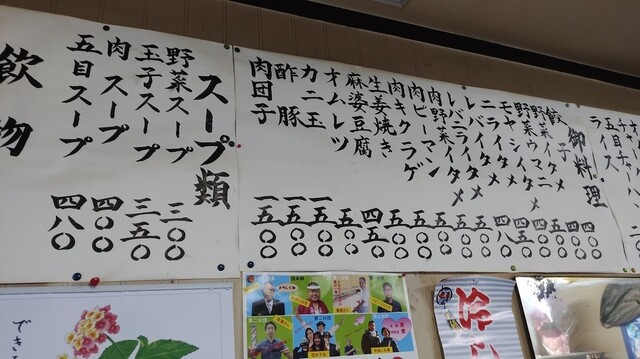 ライス
御料理
餃子 四〇〇
野菜イタメ 四〇〇
野菜ウマニ 五〇〇
モヤシイタメ 五〇〇
ニライタメ 四五〇
レバイタメ 四八〇
レバニライタメ 五〇〇
肉野菜イタメ 五〇〇
肉ピーマン 五〇〇
肉キクラゲ 五〇〇
生姜焼き 五〇〇
麻婆豆腐 四五〇
オムレツ 五〇〇
カニ玉 一五〇〇
酢豚 一五〇〇
肉団子 一五〇〇
スープ類
野菜スープ 三〇〇
玉子スープ 三五〇
肉スープ 四〇〇
五目スープ 四八〇
飲物
でき
冷